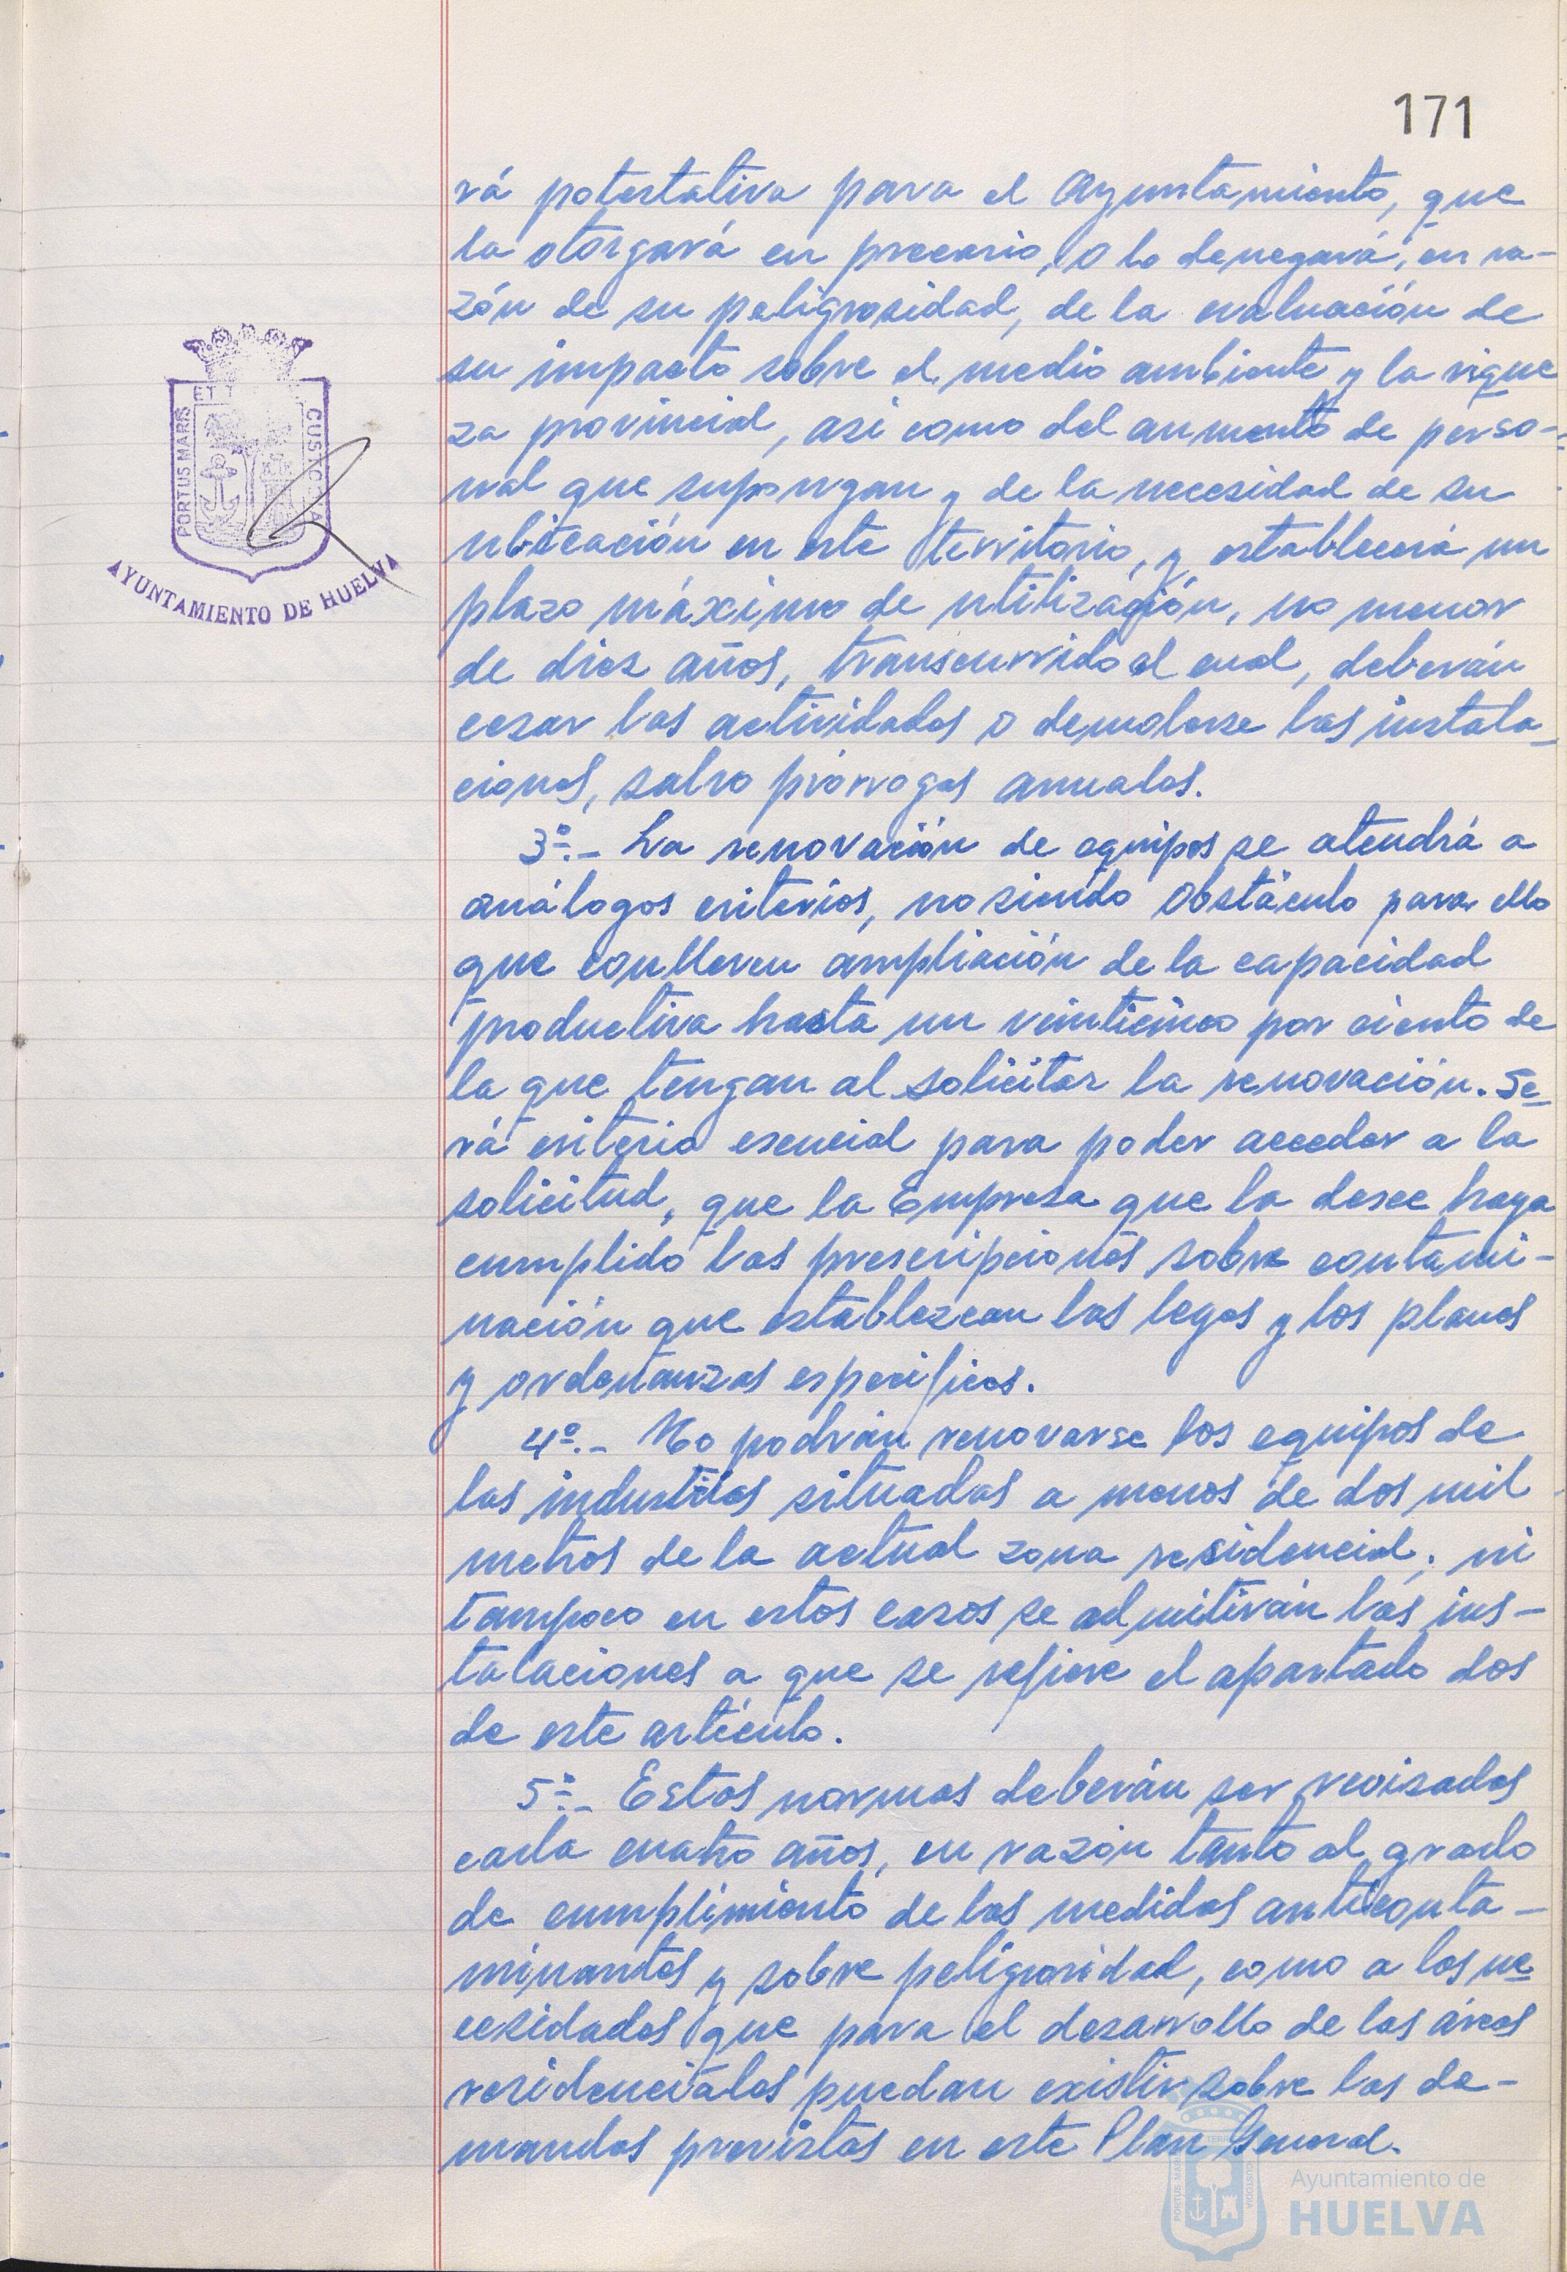 171
rá potestativa para el Ayuntamiento, que
la otorgará en precario, o la denegará, en ra-
zón de su peligrosidad, de la evaluación de
su impacto sobre el medio ambiente y la rique
za provincial, asi como del aumento de perso-
nal que supongan y de la necesidad de su
ubicación en este territorio, y establecerá un
plazo máximo de utilización, no menor
de diez años, transcurrido el cual, deberán
cesar las actividades o demolerse las instala-
ciones, salvo prórrogas anuales.
3º.- La renovación de equipos se atendrá a
análogos criterios, no siendo obstáculo para ello
que conlleven ampliación de la capacidad
productiva hasta un veinticinco por ciento de
la que tengan al solicitar la renovación. Se-
rá criterio esencial para poder acceder a la
solicitud, que la Empresa que la desee haya
cumplido las prescripciones sobre contami-
nación que establezcan las leyes y los planes
y ordenanzas específicos.
4º.- No podrán renovarse los equipos de
las industrias situadas a menos de dos mil
metros de la actual zona residencial, ni
tampoco en estos casos se admitirán las ins-
talaciones a que se refiere el apartado dos
de este artículo.
5º.- Estas normas deberán ser revisadas
cada cuatro años, en razón tanto al grado
de cumplimiento de las medidas anticonta-
minantes y sobre peligrosidad, como a las ne-
cesidades que para el desarrollo de las áreas
residenciales puedan existir sobre las de-
mandas previstas en este Plan General.
PORTUS MARIS
ET T
CUSTODIA
AYUNTAMIENTO DE HUELVA
Ayuntamiento de
HUELVA